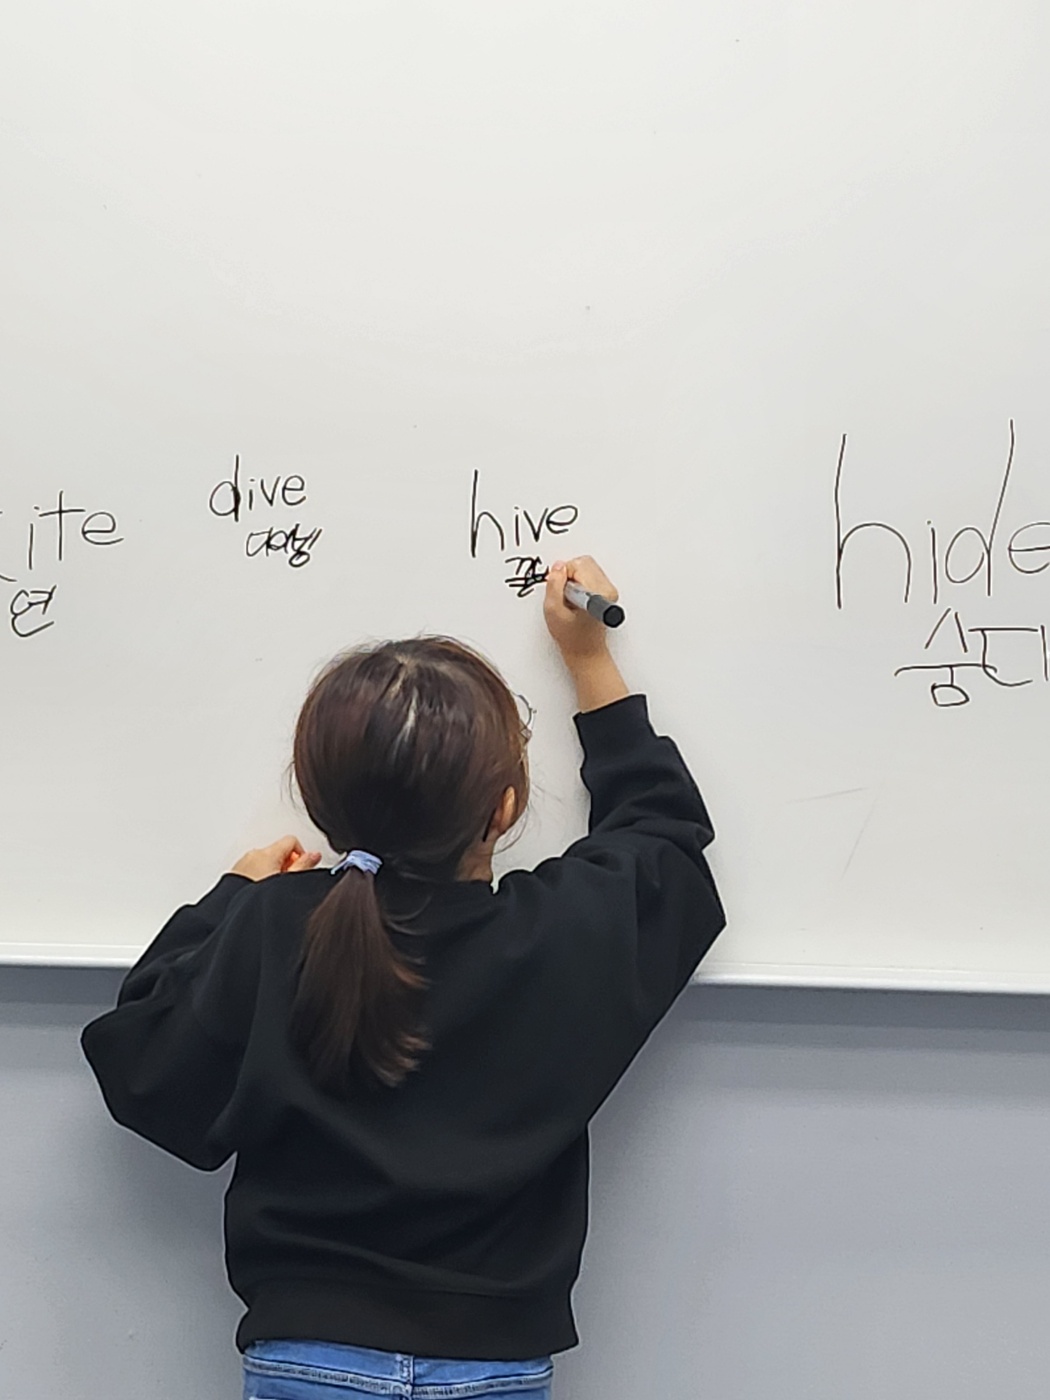 ite
연
dive
다이빙
hive
hide
숭다